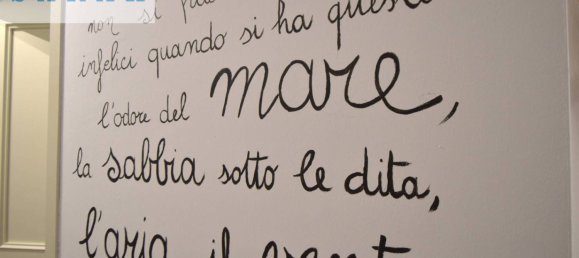 non si può
infelici quando si ha questo
l'odore del mare,
la sabbia sotto le dita,
l'aria, il